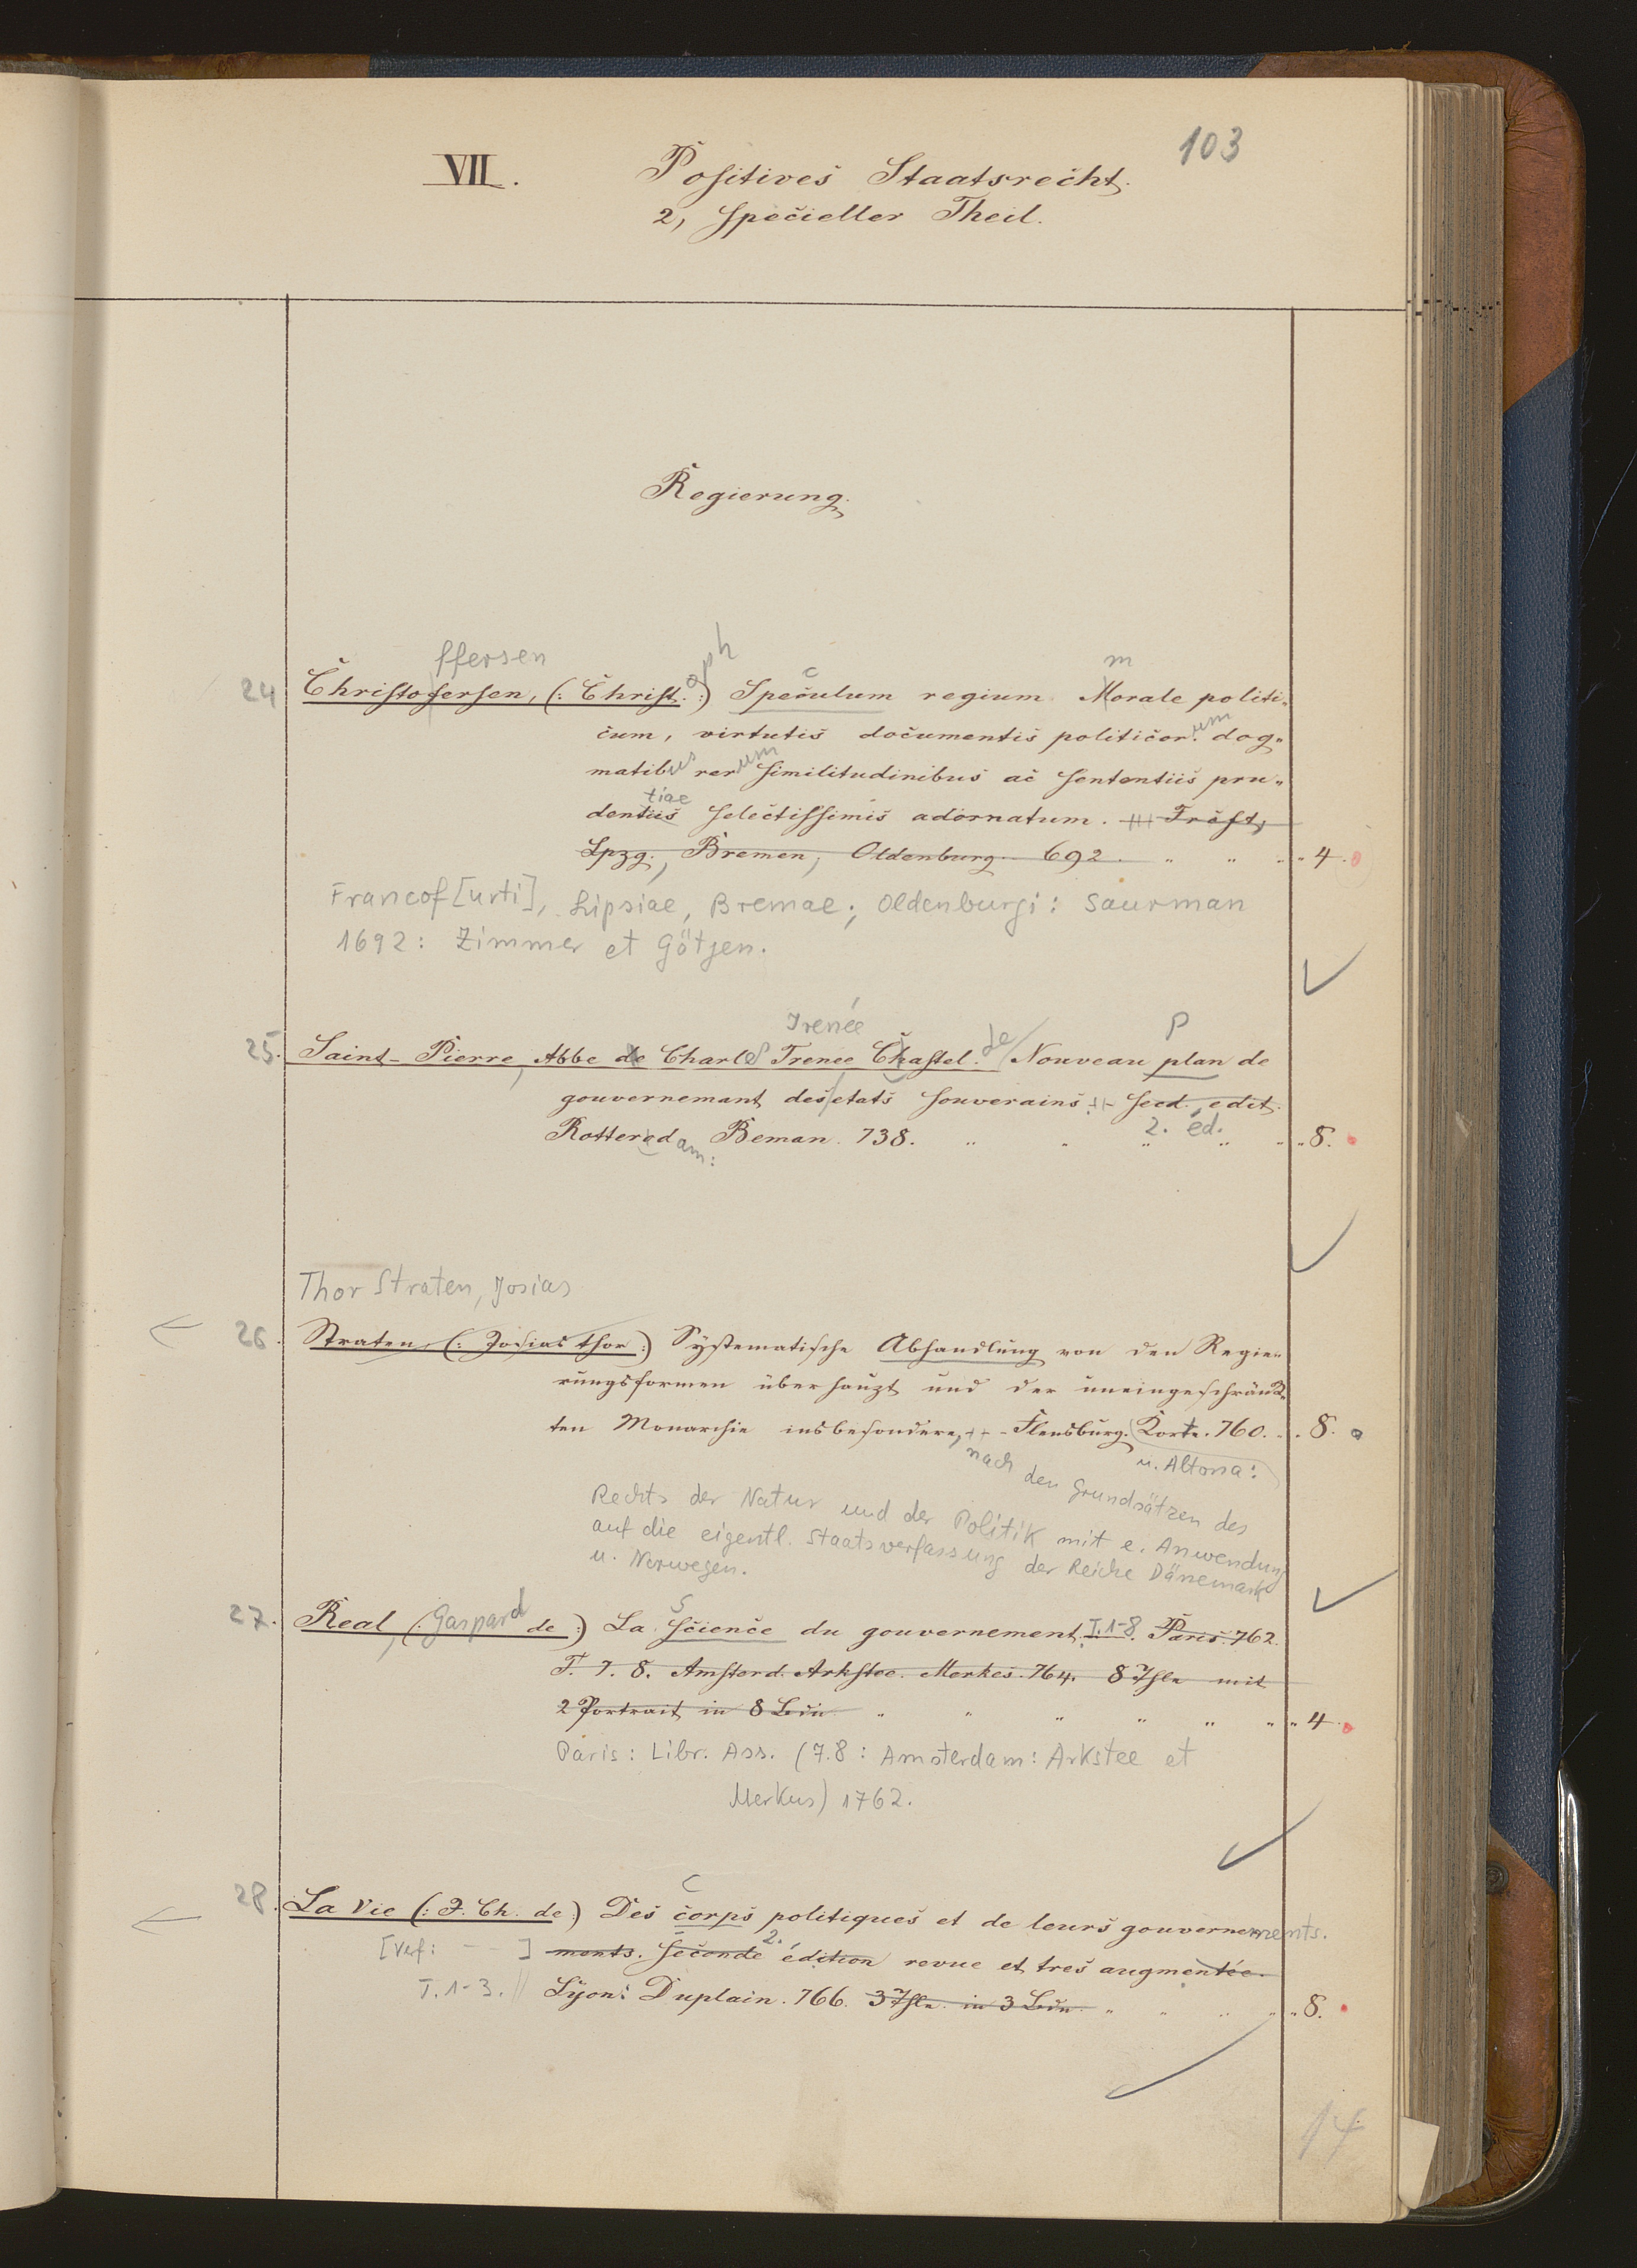 103
VII. Positives Staatsrecht.
2, specieller Theil.
Regierung.
ffersen oph c m
24 Christofersen, (: Christ. :) Speculum regium Morale politi-
cum, virtutis documentis politicor.um dog-
matibus rerum similitudinibus ac sententiis pru-
tiae
dentiis selectissimis adornatum. Frcft,
Lpzg., Bremen, Oldenburg. 692. " " " " 4.
Francof[urti], Lipsiae, Bremae, Oldenburgi: Saurman
1692: Zimmer et Götjen.
Irenée de p
25. Saint-Pierre, Abbe de Charles Trenee Chastel. Nouveau plan de
gouvernemant des etats souverains. ++ secd. edit.
2. éd.
Rotteredam: Beman. 738. " " " " " " 8.
Thor Straten, Josias
26. Straten, (: Josias thor :) Systematische Abhandlung von den Regie-
rungsformen überhaupt und der uneingeschränk-
ten Monarchie insbesondere, ++ Flensburg. Korte. 760. " " 8.
u. Altona:
nach den Grundsätzen des
Rechts der Natur und der Politik mit e. Anwendung
auf die eigentl. Staatsverfassung der Reiche Dänemark
u. Norwegen.
S
27. Real, (: Gaspard de :) La science du gouvernement. T. 1-8. Paris. 762.
T. 7. 8. Amsterd. Arkstee. Merkes. 764. 8 Thle mit
2 Portrait in 8 Bdn " " " " " " " 4.
Paris: Libr. Ass. (7.8: Amsterdam: Arkstee et
Merkus) 1762.
C
28. La Vie (: J. Ch. de :) Des corps politiques et de leurs gouvernements.
[Verf: — ] ments. Seconde 2. édition revue et tres augmentée.
T. 1-3. Lyon: Duplain. 766. 3 Thle. in 3 Bdn. " " " " " 8.
14